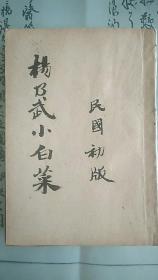 楊乃武小白菜
民國初版